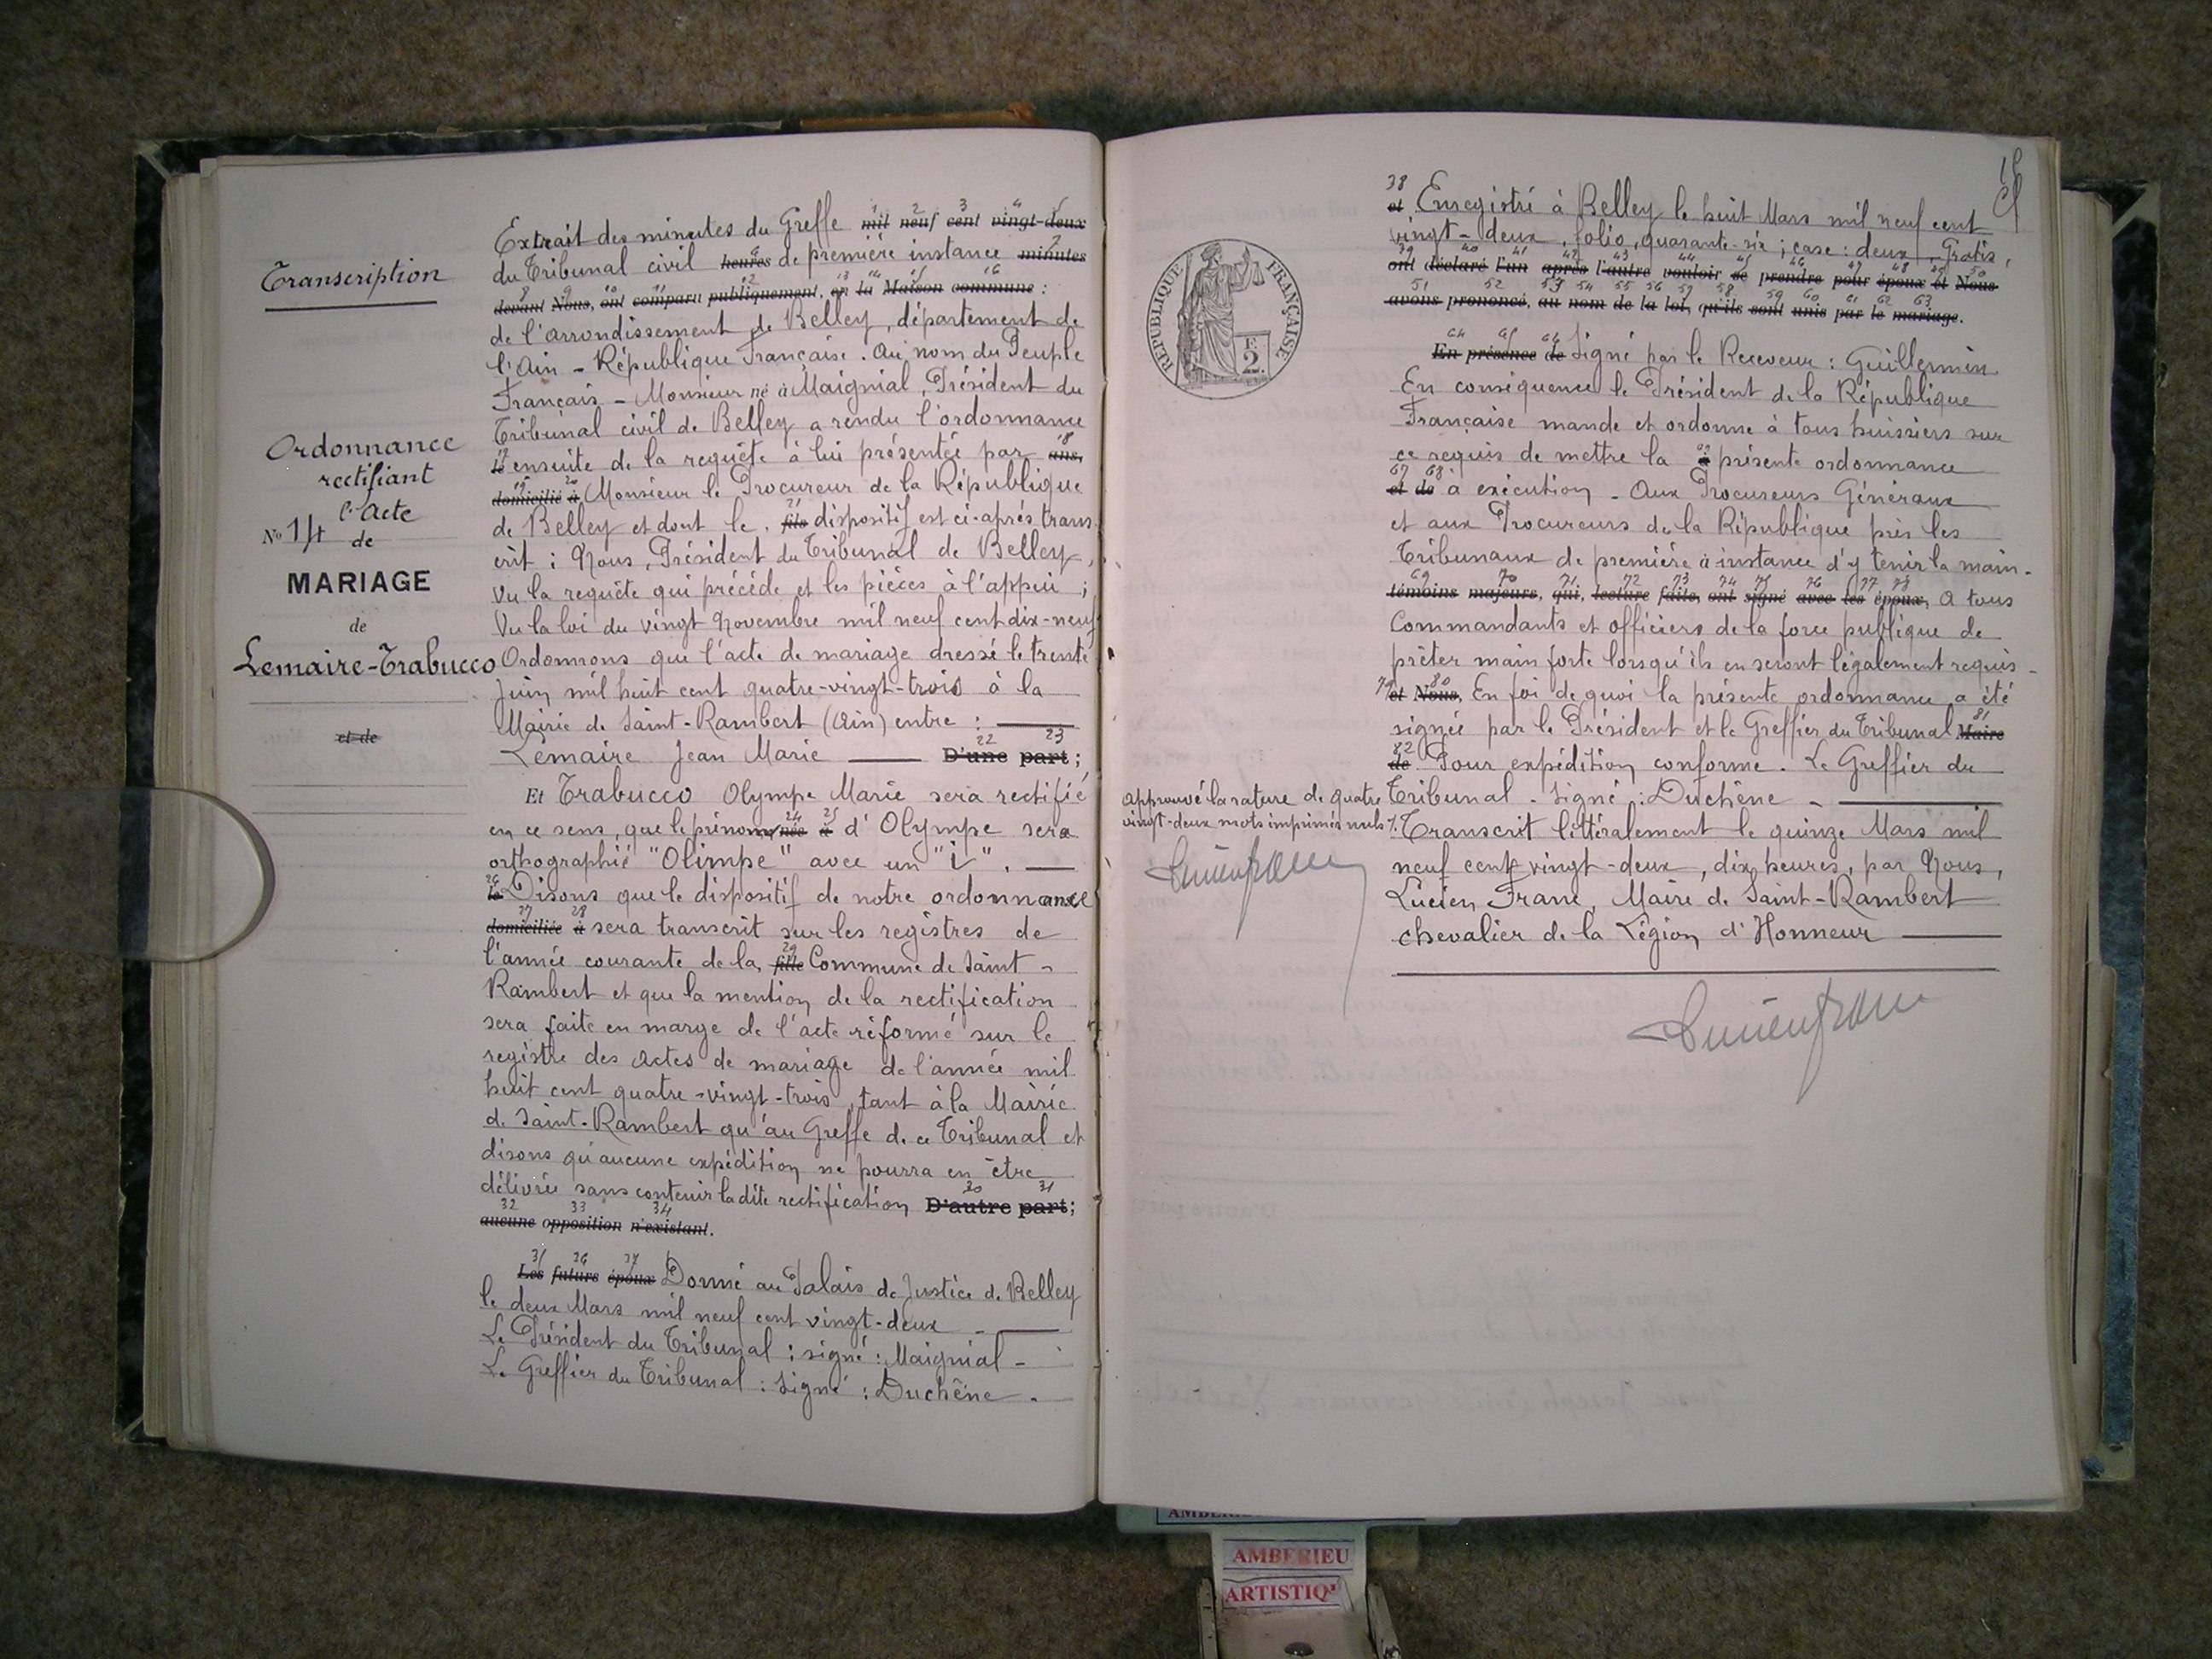 Transcription
Ordonnance
rectifiant
l'Acte
No 14 de
MARIAGE
de
Lemaire-Trabucco
et de
Extrait des minutes du Greffe mil neuf cent vingt-deux
du Tribunal civil heures de première instance minutes
devant Nous, ont comparu publiquement, en la Maison commune :
de l'arrondissement de Belley, département de
l'Ain - République Française. Au nom du Peuple
Français - Monsieur né à Maignial, Président du
Tribunal civil de Belley a rendu l'ordonnance
ensuite de la requête à lui présentée par ans,
domicilié à Monsieur le Procureur de la République
de Belley et dont le, fils dispositif est ci-après trans
crit : Nous, Président du Tribunal de Belley,
Vu la requête qui précède et les pièces à l'appui ;
Vu la loi du vingt Novembre mil neuf cent dix-neuf
Ordonnons que l'acte de mariage dressé le trente
Juin mil huit cent quatre-vingt-trois à la
Mairie de Saint-Rambert (Ain) entre :
Lemaire Jean Marie D'une part ;
Et Trabucco Olympe Marie sera rectifié
en ce sens, que le prénom née à d'Olympe sera
orthographié "Olimpe" avec un "i".
le Disons que le dispositif de notre ordonnance
domiciliée à sera transcrit sur les registres de
l'année courante de la, fille Commune de Saint-
Rambert et que la mention de la rectification
sera faite en marge de l'acte réformé sur le
registre des actes de mariage de l'année mil
huit cent quatre-vingt-trois, tant à la Mairie
de Saint-Rambert qu'au Greffe de ce Tribunal et
disons qu'aucune expédition ne pourra en être
délivrée sans contenir ladite rectification D'autre part ;
aucune opposition n'existant.
Les futurs époux Donné au Palais de Justice de Belley
le deux Mars mil neuf cent vingt-deux -
Le Président du Tribunal : signé : Maignial -
Le Greffier du Tribunal : Signé : Duchêne -
RÉPUBLIQUE FRANÇAISE
F.
2.
approuvé la rature de quatre
vingt-deux mots imprimés nuls
38
et Enregistré à Belley le huit Mars mil neuf cent
vingt-deux, folio, quarante-six ; case : deux, Gratis,
ont déclaré l'un après l'autre vouloir se prendre pour époux et Nous
avons prononcé, au nom de la loi, qu'ils sont unis par le mariage.
En présence de Signé par le Receveur : Guillermin
En conséquence le Président de la République
Française mande et ordonne à tous huissiers sur
ce requis de mettre la présente ordonnance
et de à exécution - Aux Procureurs Généraux
et aux Procureurs de la République près les
Tribunaux de première à instance d'y tenir la main -
témoins majeurs, qui, lecture faite, ont signé avec les époux, A tous
Commandants et officiers de la force publique de
prêter main forte lorsqu'ils en seront légalement requis -
et Nous, En foi de quoi la présente ordonnance a été
signée par le Président et le Greffier du Tribunal Maire
de Pour expédition conforme. Le Greffier du
Tribunal - Signé : Duchêne -
Transcrit littéralement le quinze Mars mil
neuf cent vingt-deux, dix heures, par Nous,
Lucien Franc, Maire de Saint-Rambert
chevalier de la Légion d'Honneur
AMBERIEU
ARTISTIQ